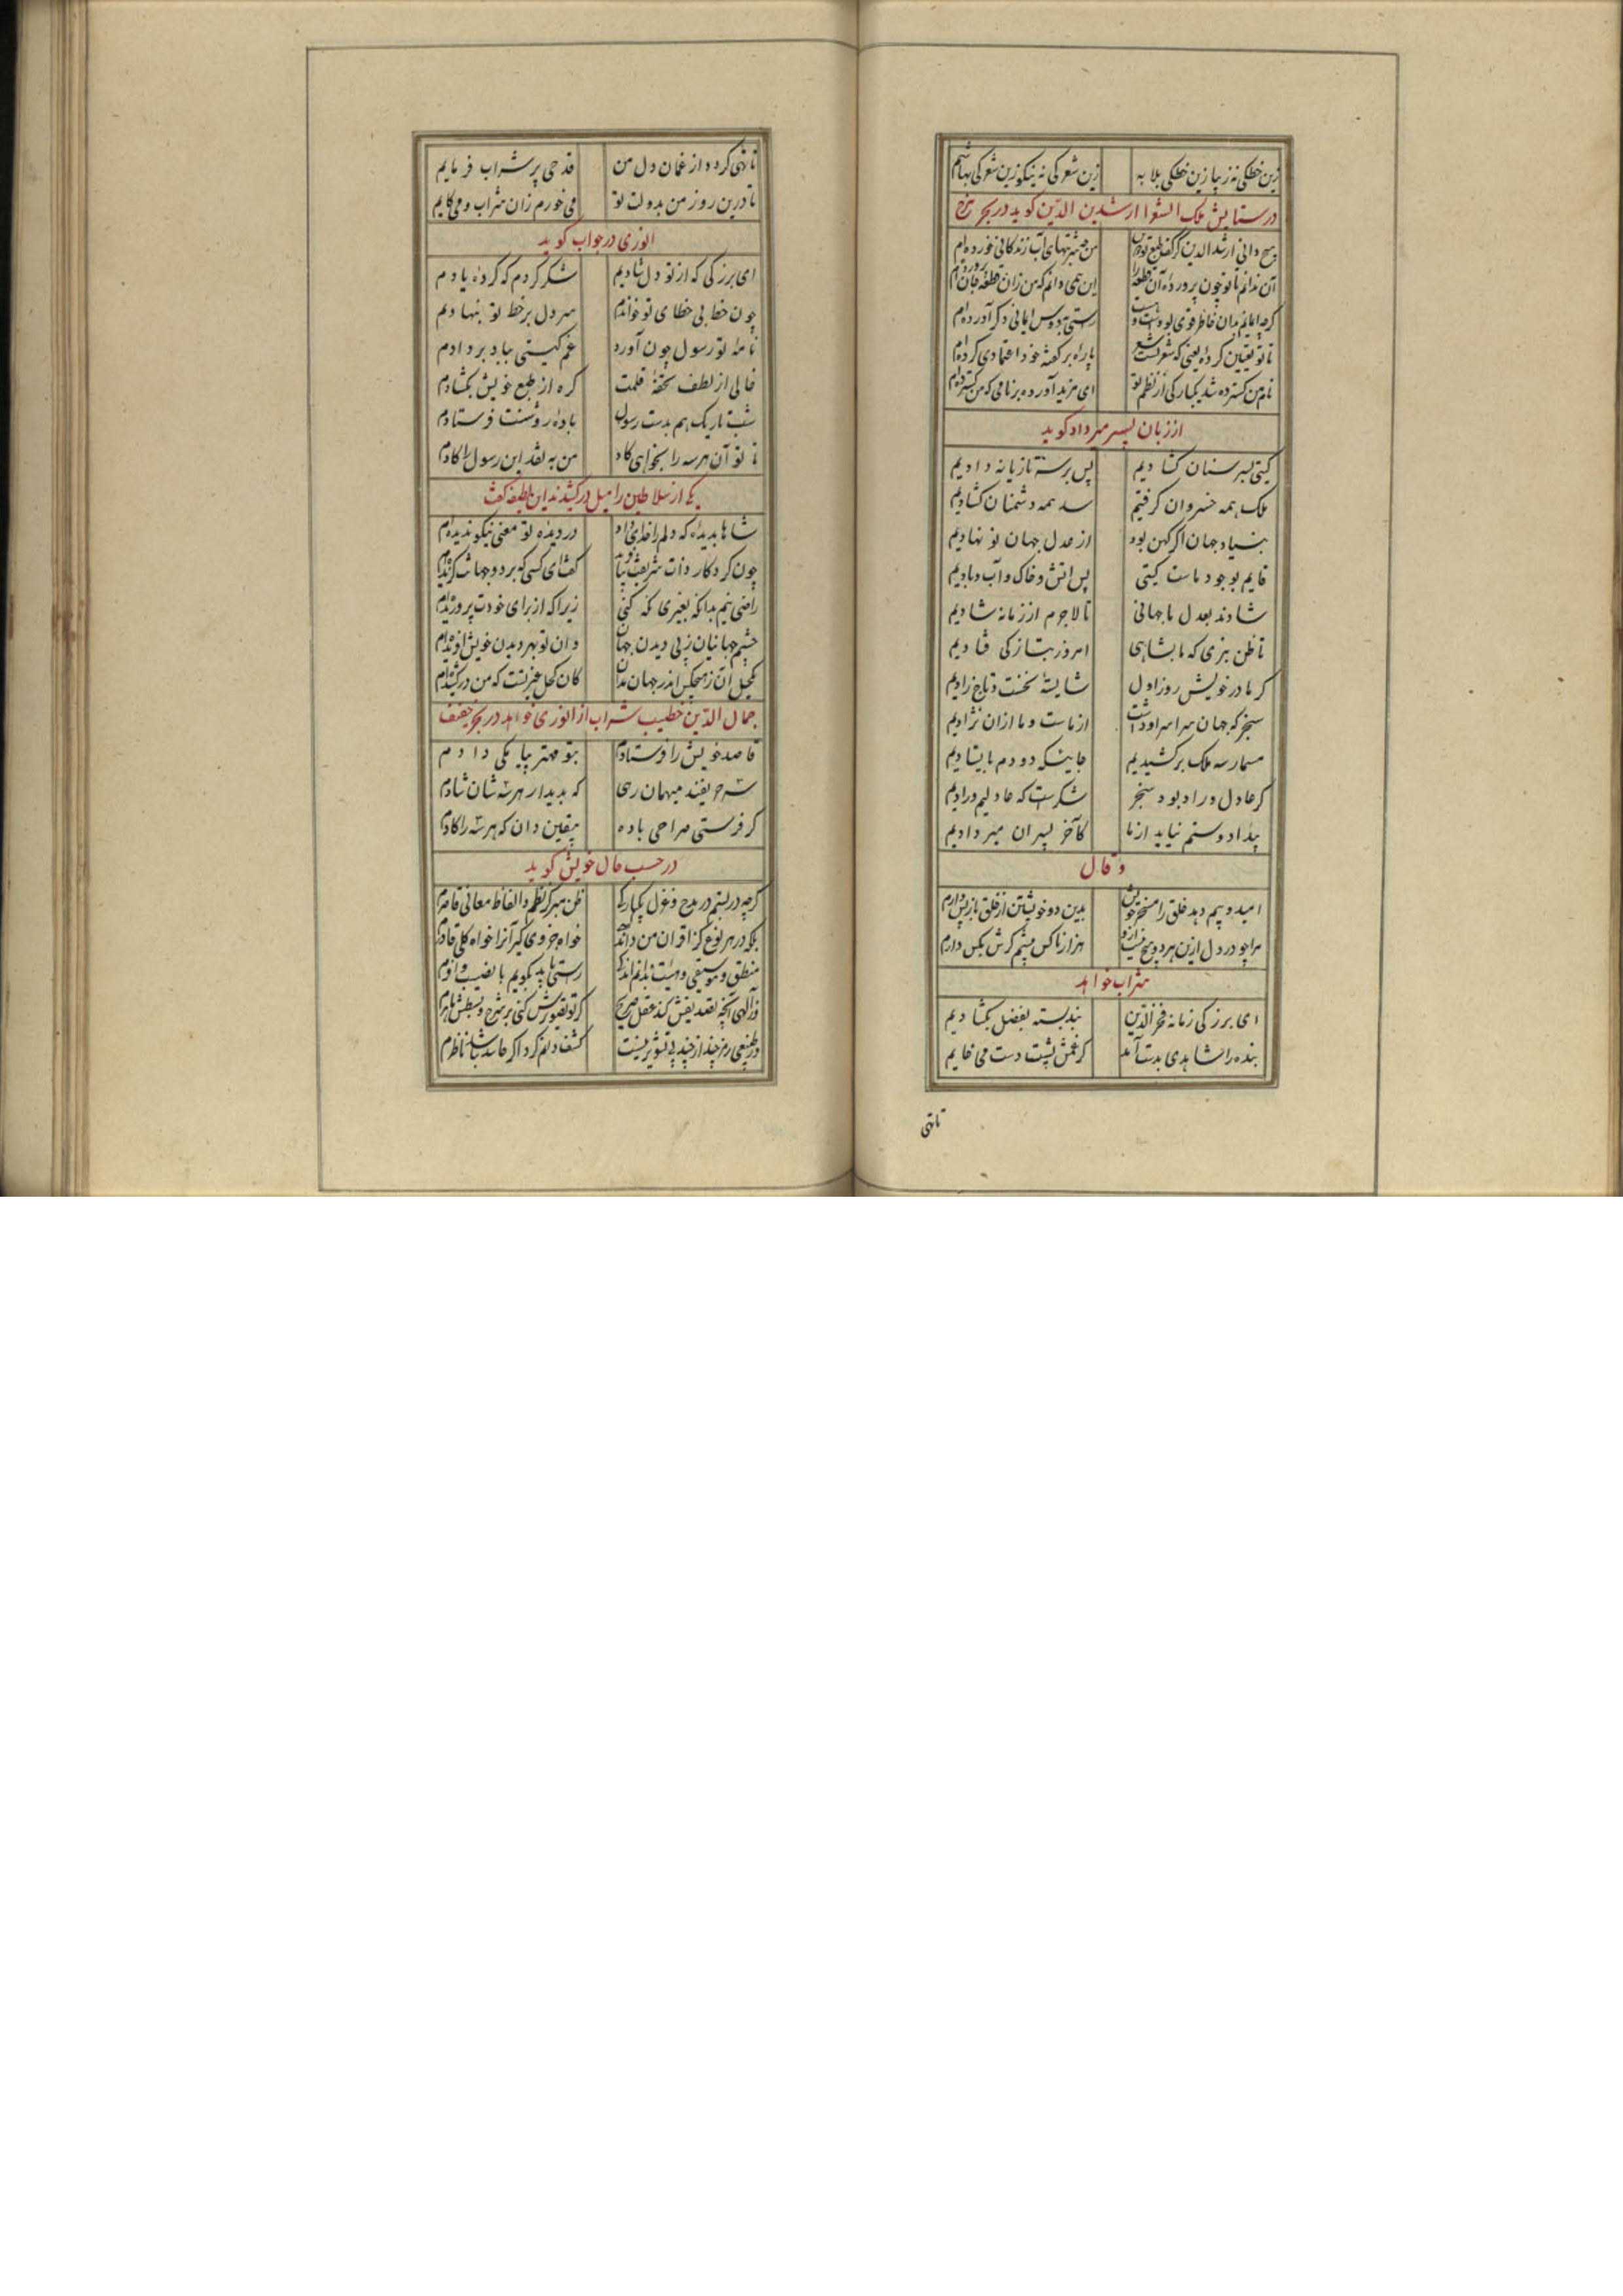 زین خطکی نه زیبا زین خطکی بلا به زین شعرکی نه نیکو زین شعرکی
در ستایش ملک الشعرا ارشدین الدین کوید در بحر
هیچ دانی ارشد الدین کز کف طبع تو من چه شربتهای آب زندکانی خورده ام
آن ندانم تا تو چون پرورده آن قطعه را این همی دانم که من زان قطعه جان پرورده ام
کرچه ایمانم بدان خاطر قوی بودست و هست راستی به دوس ایمانی دکر آورده ام
تا تو تعیین کرده یعنی که شعر تست شعر پاره بر کفته خود اعتمادی کرده ام
نام من کسترده شد یکبارکی از نظم تو ای مزید آورده بر نامی که من کسترده ام
از زبان پسر میر داد کوید
کیتی بسر سنان کشادیم پس بر سر تازیانه دادیم
ملک همه خسروان کرفتیم سد همه دشمنان کشادیم
بنیاد جهان اکر کهن بود از عدل جهان نو نهادیم
قایم بوجود ماست کیتی پس اتش و خاک و آب و بادیم
شادند بعدل ما جهانی تا لاجرم از زمانه شادیم
تا ظن نبری که ما بشاهی امروز بتازکی فتادیم
کز مادر خویش روز اول شایسته تخت و تاج زادیم
سنجر که جهان سراسر او داشت از ماست و ما ازان نژادیم
مسمار سه ملک برکشیدیم جاییکه دو دم بایستادیم
کر عادل و راد بود سنجر شکرست که عادلیم و رادیم
بیداد و ستم نیاید از ما کآخر پسران میر دادیم
و قال
امید و بیم دهد خلق را مسخر خویش بدین دو خویشتن از خلق باز پس دارم
مرا چو در دل ازین هر دو هیچ نیست ازو هزار ناکس بینم کرش بکس دارم
شراب خواهد
ای بزرکی زمانه فخر الدین بند بسته بفضل بکشادیم
بنده را شاهدی بدست آمد کز غمش پشت دست می خایم
تا تهی
تا تهی کردد از غمان دل من قدحی پر شراب فرمایم
تا درین روز من بدولت تو می خورم زان شراب و می کایم
انوری در جواب کوید
ای بزرکی که از تو دل شادیم شکر کردم که کرده یادم
چون خط بی خطای تو خواندم سر دل بر خط تو بنهادم
نامه تو رسول چون آورد غم کیتی بباد بر دادم
خالی از لطف تحفه قلمت کره از طبع خویش بکشادم
شب تاریک هم بدست رسول باده روشنت فرستادم
تا تو آن هر سه را بخواهی کاد من به نقد این رسول را کادم
یکی از سلاطین را میل درکشیدند این لطیفه کفت
شاها بدیده که دلم را خدای داد در دیده تو معنی نیکو ندیده ام
چون کردکار ذات شریفت بیافرید کفت ای کسی که بر دو جهانت کزیده ام
راضی نیم بدانکه بغیری نکه کنی زیرا که از برای خودت پروریده ام
چشم جهانیان ز پی دیدن جهان و ان تو بهر دیدن خویش آفریده ام
تکحیل آن ز هیچکس اندر جهان مدان کان کحل غیرتست که من درکشیده ام
جمال الدین خطیب شراب از انوری خواهد در بحر خفیف
قاصد خویش را فرستادم بتو مهتر پیامکی دادم
سه حریفند میهمان رهی که بدیدار هر سه شان شادم
کر فرستی صراحی باده بیقین دان که هر سه را کادم
در حسب حال خویش کوید
کرچه در بستم در مدح و غزل یکبارکی ظن مبر کز نظم و الفاظ معانی قاصرم
بلکه در هر نوع کز اقران من داند کسی خواه جزوی کیر آنرا خواه کلی قادرم
منطق و موسیقی و هیئت بدانم اندکی راستی باید بکویم با نصیب وافرم
وز الهی آنچه تصدیقش کند عقل صریح کر تو تصدیقش کنی بر شرح و بسطش ماهرم
در طبیعی رمز چند از چند بی تشویر نیست کشف دانم کرد اکر حاسد نباشد ناظرم